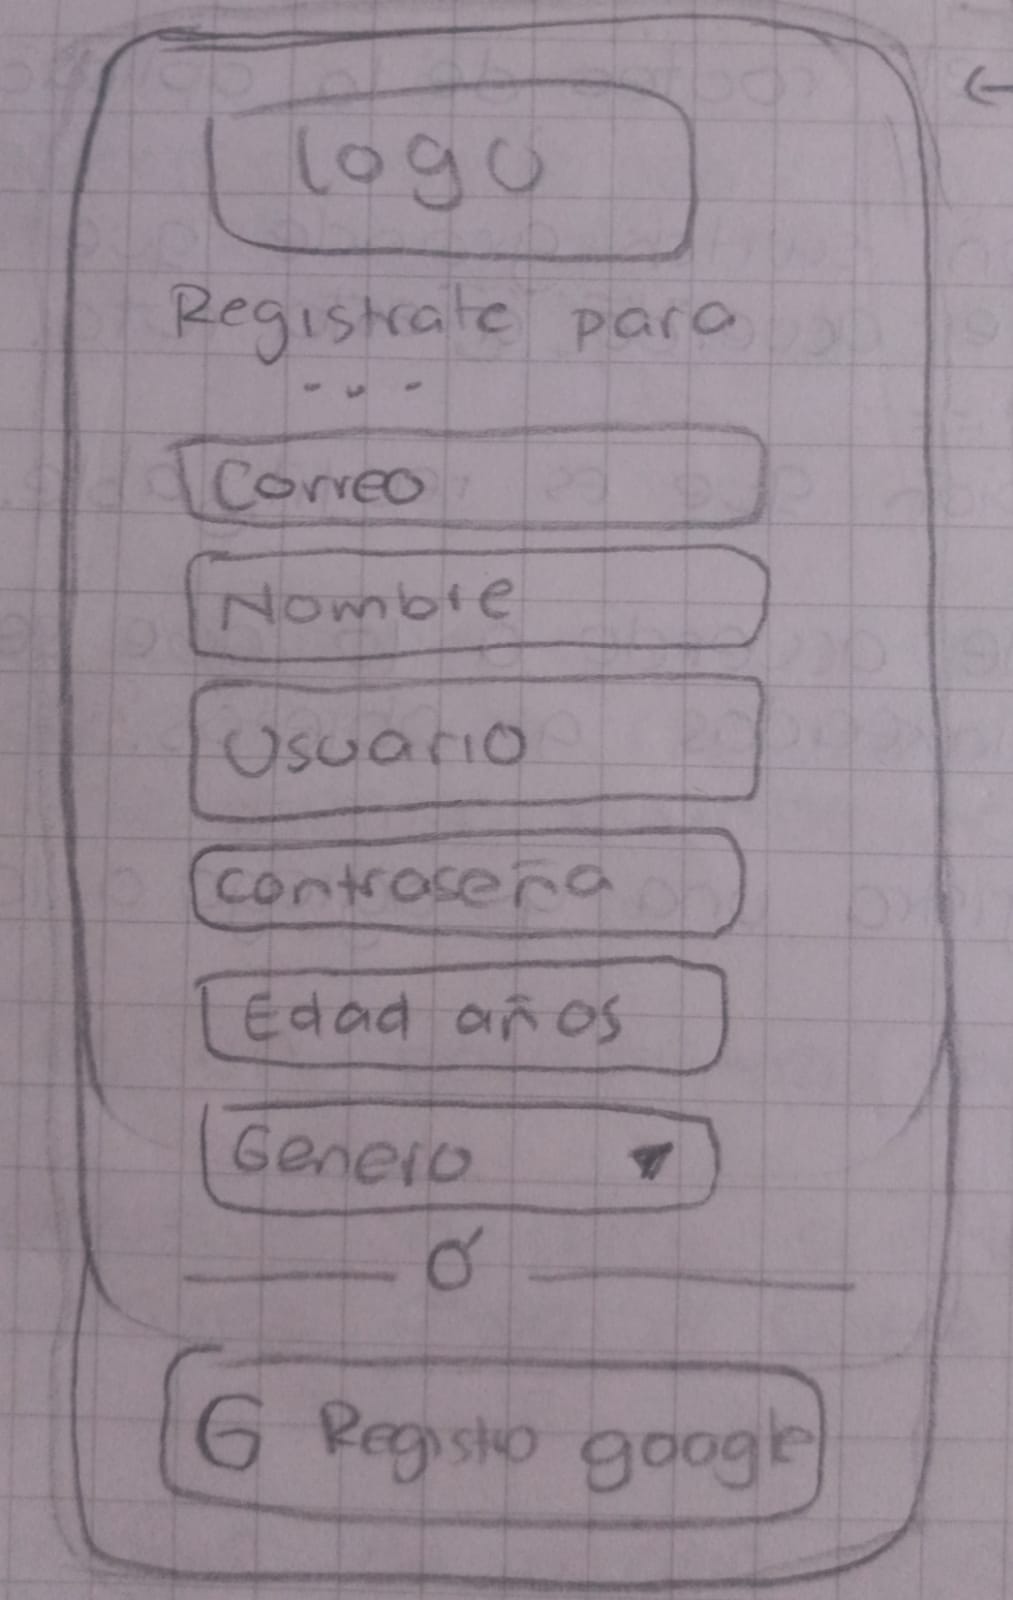 logo
Registrate para
...
Correo
Nombre
Usuario
contraseña
Edad años
Genero
Ó
G Registro google